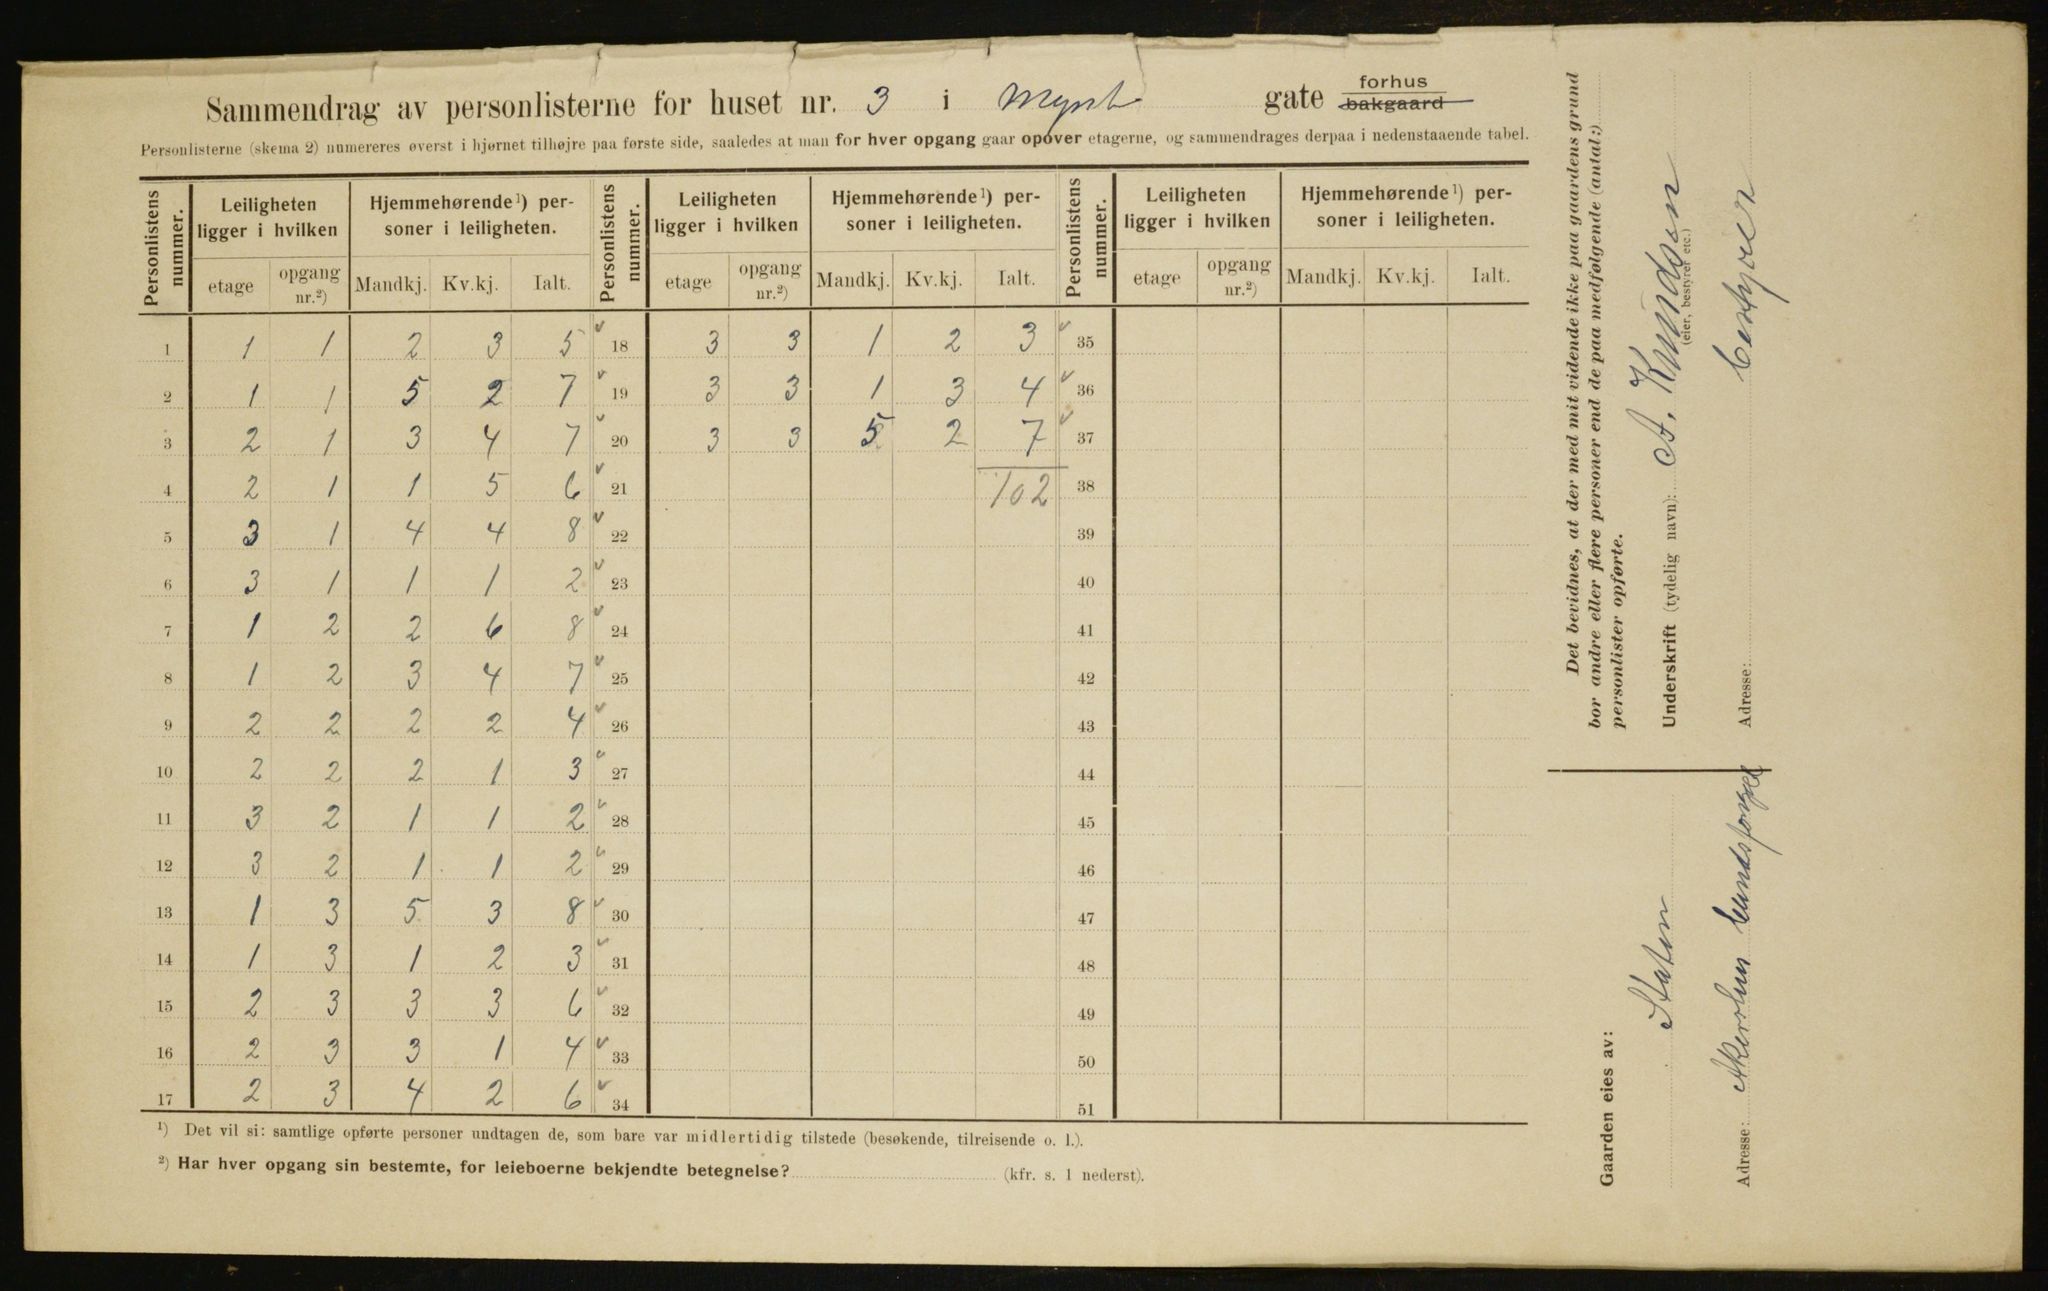 Sammendrag av personlisterne for huset nr. 3 i gate forhus bakgaard
Personlisterne (skema 2) numereres øverst i hjørnet tilhøjre paa første side, saaledes at man for hver opgang gaar opover etagerne, og sammendrages derpaa i nedenstaaende tabel.
Personlistens nummer. Leiligheten ligger i hvilken Hjemmehørende¹) personer i leiligheten. Personlistens nummer. Leiligheten ligger i hvilken Hjemmehørende¹) personer i leiligheten. Personlistens nummer. Leiligheten ligger i hvilken Hjemmehørende¹) personer i leiligheten.
etage opgang nr.²) Mandkj. Kv.kj. Ialt. etage opgang nr.²) Mandkj. Kv.kj. Ialt. etage opgang nr.²) Mandkj. Kv.kj. Ialt.
1 1 1 2 3 5 18 3 3 1 2 3 35
2 1 1 5 2 7 19 3 3 1 3 4 36
3 2 1 3 4 7 20 3 3 5 2 7 37
4 2 1 1 5 6 21 102 38
5 3 1 4 4 8 22 39
6 3 1 1 1 2 23 40
7 1 2 2 6 8 24 41
8 1 2 3 4 7 25 42
9 2 2 2 2 4 26 43
10 2 2 2 1 3 27 44
11 3 2 1 1 2 28 45
12 3 2 1 1 2 29 46
13 1 3 5 3 8 30 47
14 1 3 1 2 3 31 48
15 2 3 3 3 6 32 49
16 2 3 3 1 4 33 50
17 2 3 4 2 6 34 51
¹) Det vil si: samtlige opførte personer undtagen de, som bare var midlertidig tilstede (besøkende, tilreisende o. l.).
²) Har hver opgang sin bestemte, for leieboerne bekjendte betegnelse? (kfr. s. 1 nederst).
Det bevidnes, at der med mit vidende ikke paa gaardens grund
bor andre eller flere personer end de paa medfølgende (antal:)
personlister opførte.
Underskrift (tydelig navn): A. Knudsen
(eier, bestyrer etc.)
Adresse: bestyrer
Gaarden eies av:
Staten
Adresse: Akershus